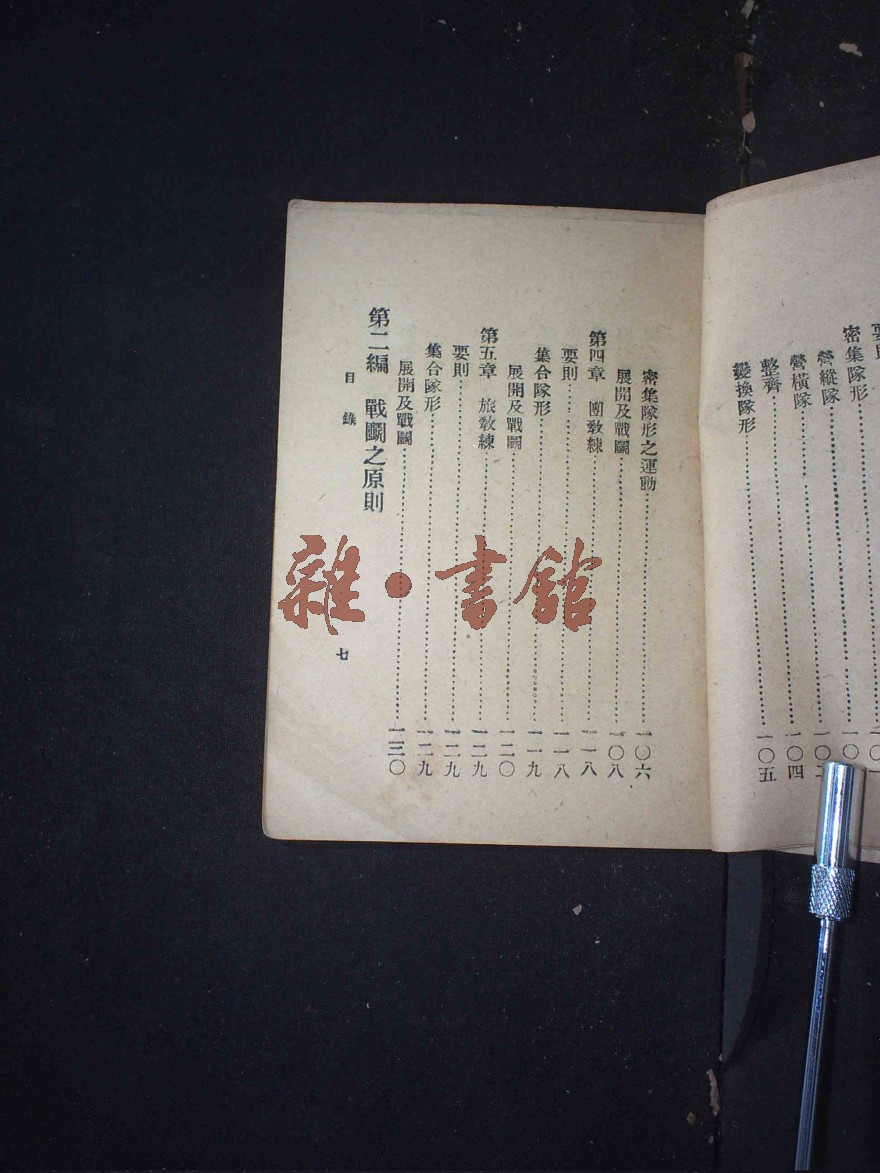 要則
密集隊形………一〇
營縱隊………一〇二
營橫隊………一〇四
整齊………一〇四
變換隊形………一〇五
密集隊形之運動………一〇六
展開及戰鬭………一〇八
第四章　團敎練………一一八
要則………一一八
集合隊形………一一九
展開及戰鬭………一二〇
第五章　旅敎練………一二九
要則………一二九
集合隊形………一二九
展開及戰鬭………一三〇
第二編　戰鬭之原則
目錄
七
雜·書館